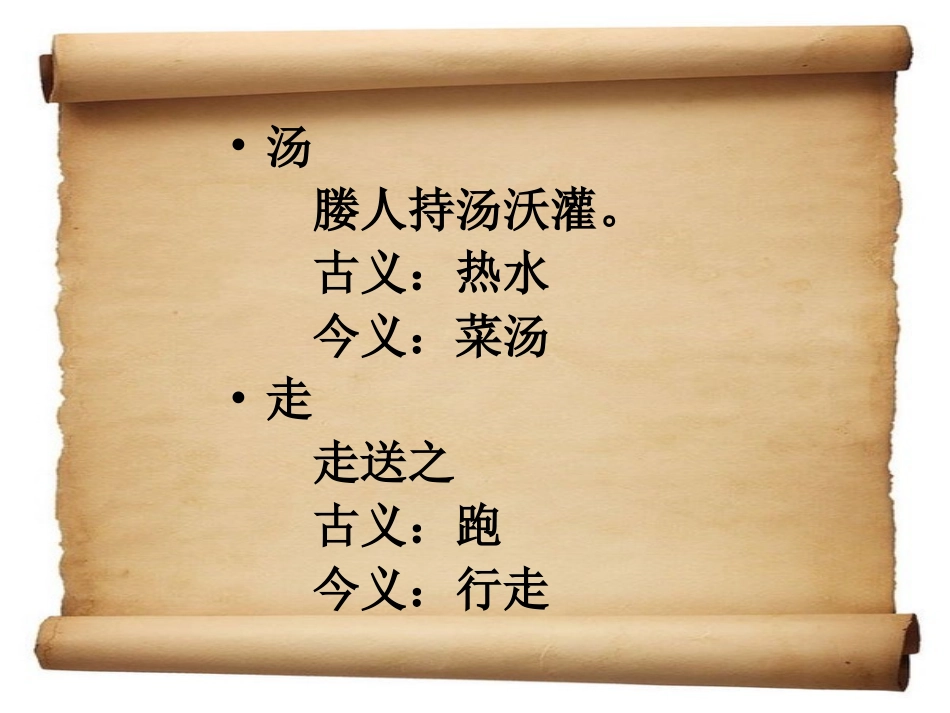 • 汤
媵人持汤沃灌。
古义：热水
今义：菜汤
• 走
走送之
古义：跑
今义：行走